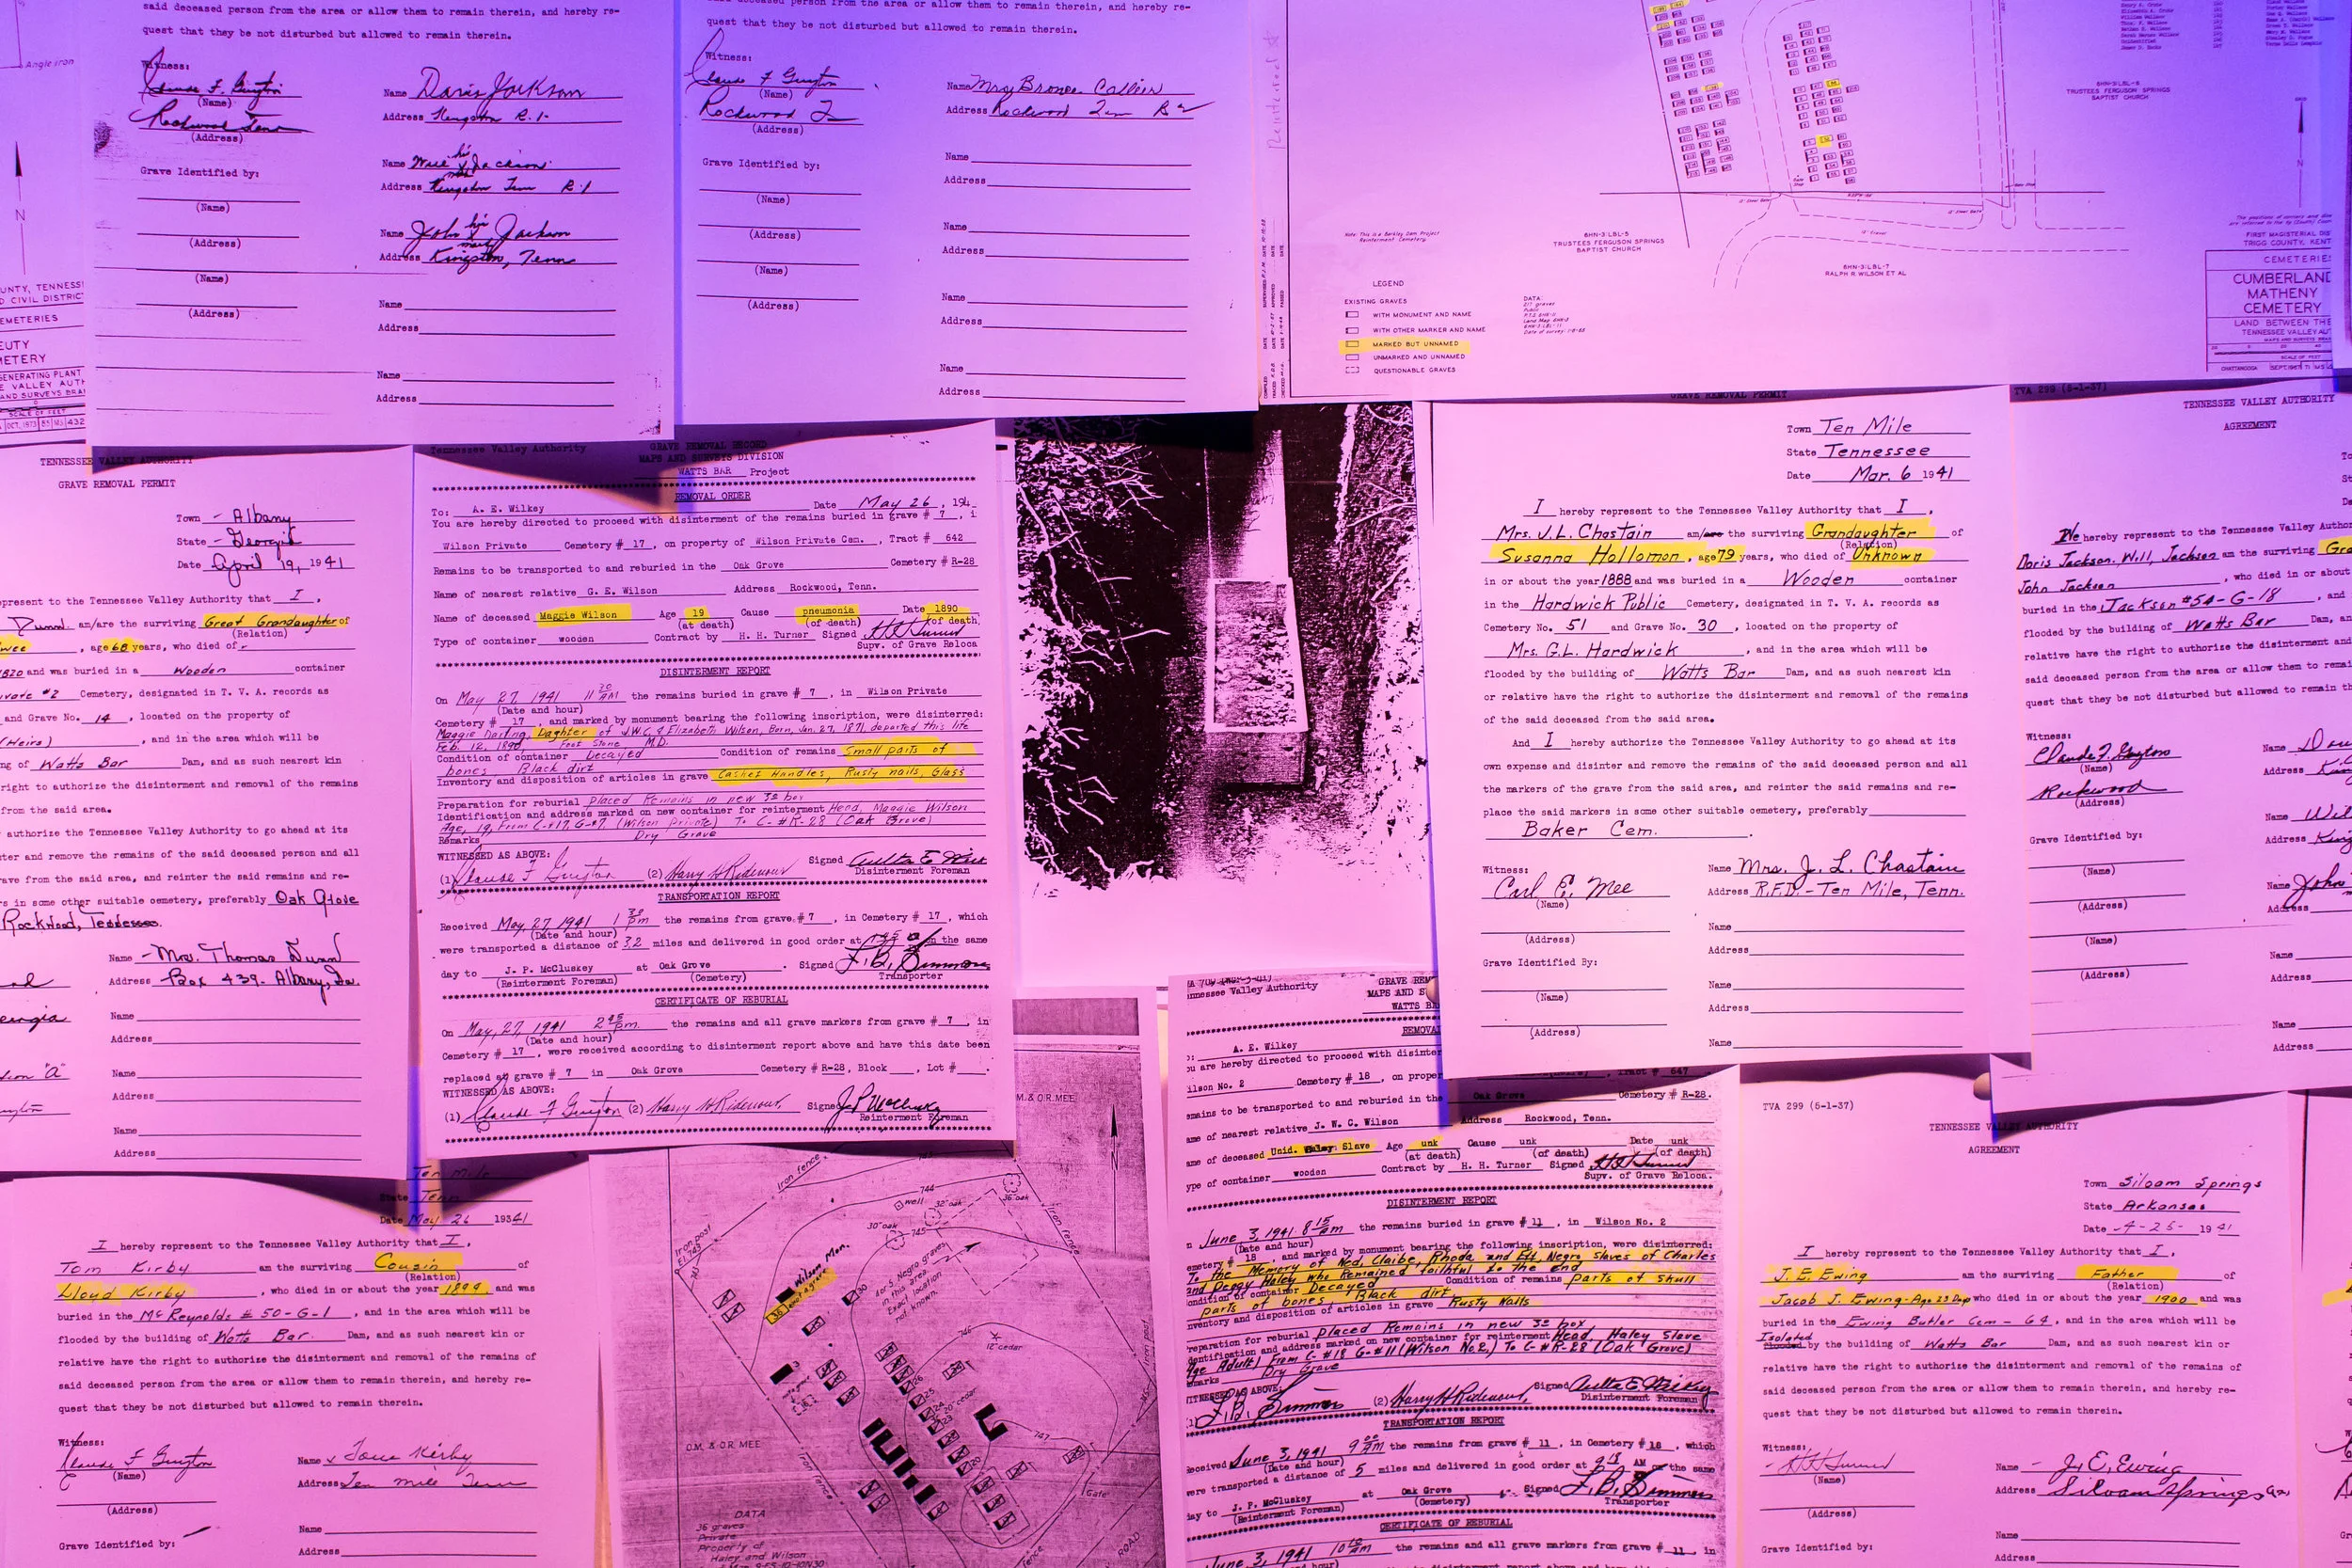 said deceased person from the area or allow them to remain therein, and hereby re-
quest that they be not disturbed but allowed to remain therein.
Witness:
Claude F. Guyton
(Name)
Rockwood Tenn
(Address)
Name Doris Jackson
Address Kingston R.1-
Name Will his X mark Jackson
Address Kingston Tenn R.1
Name John his X mark Jackson
Address Kingston, Tenn
Grave Identified by:
(Name)
(Address)
(Name)
(Address)
Name
Address
Name
Address
Angle iron
N
quest that they be not disturbed but allowed to remain therein.
Witness:
Claude F Guyton
(Name)
Rockwood
(Address)
Name Mrs
Address Rockwood Tenn R 2
Grave Identified by:
(Name)
(Address)
(Name)
(Address)
Name
Address
Name
Address
Name
Address
Name
Address
Reinterred
6HN-3:LBL-6
TRUSTEES FERGUSON SPRINGS
BAPTIST CHURCH
6HN-3:LBL-5
TRUSTEES FERGUSON SPRINGS
BAPTIST CHURCH
6HN-3:LBL-7
RALPH R WILSON ET AL
Note: This is a Barkley Dam Project
Reinterment Cemetery.
LEGEND
EXISTING GRAVES
WITH MONUMENT AND NAME
WITH OTHER MARKER AND NAME
MARKED BUT UNNAMED
UNMARKED AND UNNAMED
QUESTIONABLE GRAVES
DATA:
217 graves
Public
FIRST MAGISTERIAL DIS
TRIGG COUNTY, KENT
CEMETERIE
CUMBERLAND
MATHENY
CEMETERY
LAND BETWEEN THE
TENNESSEE VALLEY AU
SCALE OF FEET
CHATTANOOGA
UNTY, TENNESS
CIVIL DISTRIC
EMETERIES
EUTY
METERY
GENERATING PLANT
E VALLEY AUTH
AND SURVEYS BRA
SCALE OF FEET
OCT, 1973
TENNESSEE VALLEY AUTHORITY
GRAVE REMOVAL PERMIT
Town - Albany
State - Georgia
Date April 19, 1941
present to the Tennessee Valley Authority that I,
Dunn am/are the surviving Great Grandaughter of
(Relation)
, age 68 years, who died of -
1820 and was buried in a Wooden container
#2 Cemetery, designated in T. V. A. records as
and Grave No. 14, located on the property of
(Heirs), and in the area which will be
ng of Watts Bar Dam, and as such nearest kin
right to authorize the disinterment and removal of the remains
from the said area.
authorize the Tennessee Valley Authority to go ahead at its
ter and remove the remains of the said deceased person and all
ave from the said area, and reinter the said remains and re-
rs in some other suitable cemetery, preferably Oak Grove
Rockwood, Tennessee.
Name - Mrs. Thomas Dunn
Address Box 439. Albany, Ga.
Name
Address
Name
Address
Name
Address
Tennessee Valley Authority
GRAVE REMOVAL RECORD
MAPS AND SURVEYS DIVISION
WATTS BAR Project
REMOVAL ORDER
To: A. E. Wilkey Date May 26, 194
You are hereby directed to proceed with disinterment of the remains buried in grave # 7, i
Wilson Private Cemetery # 17, on property of Wilson Private Cem., Tract # 642
Remains to be transported to and reburied in the Oak Grove Cemetery # R-28
Name of nearest relative G. E. Wilson Address Rockwood, Tenn.
Name of deceased Maggie Wilson Age 19 Cause pneumonia Date 1890
(at death) (of death) (of death)
Type of container wooden Contract by H. H. Turner Signed H H Turner
Supv. of Grave Reloca
DISINTERMENT REPORT
On May 27, 1941 11 20 AM the remains buried in grave # 7, in Wilson Private
(Date and hour)
Cemetery # 17, and marked by monument bearing the following inscription, were disinterred:
Maggie Darling, Daghter of J.W.C. & Elizabeth Wilson, Born, Jan. 27, 1871, departed this life
Feb. 12, 1890 Foot Stone M.D.
Condition of container Decayed Condition of remains Small parts of
bones Black dirt
Inventory and disposition of articles in grave Casket Handles, Rusty nails, Glass
Preparation for reburial placed Remains in new 3° box
Identification and address marked on new container for reinterment Head, Maggie Wilson
Age, 19, From C-#17, G-#7 (Wilson Private) To C-#R-28 (Oak Grove)
Remarks Dry Grave
WITNESSED AS ABOVE:
(1) Claude F Guyton (2) Harry H Ridenour Signed
Disinterment Foreman
TRANSPORTATION REPORT
Received May, 27, 1941 1 30 pm the remains from grave # 7, in Cemetery # 17, which
(Date and hour)
were transported a distance of 32 miles and delivered in good order at 1 45 on the same
day to J. P. McCluskey at Oak Grove. Signed F. B. Simmons
(Reinterment Foreman) (Cemetery) Transporter
CERTIFICATE OF REBURIAL
On May, 27, 1941 2 45 pm. the remains and all grave markers from grave # 7, in
(Date and hour)
Cemetery # 17, were received according to disinterment report above and have this date been
replaced at grave # 7 in Oak Grove Cemetery # R-28, Block , Lot # .
WITNESSED AS ABOVE:
(1) Claude F Guyton (2) Harry H Ridenour, Signed J P McCluskey
Reinterment Foreman
GRAVE REMOVAL PERMIT
Town Ten Mile
State Tennessee
Date Mar. 6 1941
I hereby represent to the Tennessee Valley Authority that I,
Mrs. J.L. Chastain am/are the surviving Grandaughter of
(Relation)
Susanna Hollomon, age 79 years, who died of Unknown
in or about the year 1888 and was buried in a Wooden container
in the Hardwick Public Cemetery, designated in T. V. A. records as
Cemetery No. 51 and Grave No. 30, located on the property of
Mrs. G.L. Hardwick, and in the area which will be
flooded by the building of Watts Bar Dam, and as such nearest kin
or relative have the right to authorize the disinterment and removal of the remains
of the said deceased from the said area.
And I hereby authorize the Tennessee Valley Authority to go ahead at its
own expense and disinter and remove the remains of the said deceased person and all
the markers of the grave from the said area, and reinter the said remains and re-
place the said markers in some other suitable cemetery, preferably
Baker Cem.
Witness:
Carl E. Mee
(Name)
(Address)
Name Mrs. J. L. Chastain
Address R.F.D. - Ten Mile, Tenn.
Grave Identified By:
(Name)
(Address)
Name
Address
Name
Address
Name
TVA 299 (5-1-37)
TENNESSEE VALLEY AUTHORITY
AGREEMENT
We hereby represent to the Tennessee Valley Author
Doris Jackson, Will, Jackson am the surviving
John Jackson, who died in or about
buried in the Jackson #54-G-18, and
flooded by the building of Watts Bar Dam, an
relative have the right to authorize the disinterment
said deceased person from the area or allow them to rema
quest that they be not disturbed but allowed to remain th
Witness:
Claude F. Guyton
(Name)
Rockwood
(Address)
Grave Identified by:
(Name)
(Address)
(Name)
(Address)
Name
Address
Name
Address
Name John
Address
Name
Address
Name
Address
Ten Mile
State Tenn
Date May 26 1941
I hereby represent to the Tennessee Valley Authority that I,
Tom Kirby am the surviving Cousin of
(Relation)
Lloyd Kirby, who died in or about the year 1899 and was
buried in the McReynolds # 50-G-1, and in the area which will be
flooded by the building of Watts Bar. Dam, and as such nearest kin or
relative have the right to authorize the disinterment and removal of the remains of
said deceased person from the area or allow them to remain therein, and hereby re-
quest that they be not disturbed but allowed to remain therein.
Witness:
Claude F Guyton
(Name)
(Address)
Name x Tom Kirby
Address Ten mile Tenn
Grave Identified by:
Name
Address
M. & O.R. MEE
Iron fence
Iron post
744
well
32"oak
36"oak
30"oak
745
Iron fence
Wilson Mon.
4 or 5 Negro graves
in this area.
Exact location
not known.
746
12"cedar
20"cedar
747
O.M. & O.R. MEE
Iron fence
Gate
ROAD
DATA
36 graves
Private
Property of
Haley and Wilson
Tennessee Valley Authority
GRAVE REM
MAPS AND S
WATTS BA
REMOVAL
A. E. Wilkey
ou are hereby directed to proceed with disinter
ilson No. 2 Cemetery # 18, on proper
Tract # 647
emains to be transported to and reburied in the Oak Grove Cemetery # R-28.
ame of nearest relative J. W. C. Wilson Address Rockwood, Tenn.
ame of deceased Unid. Haley Slave Age unk Cause unk Date unk
(at death) (of death) (of death)
ype of container wooden Contract by H. H. Turner Signed H H Turner
Supv. of Grave Reloca.
DISINTERMENT REPORT
n June 3, 1941 8 15 am the remains buried in grave # 11, in Wilson No. 2
(Date and hour)
emetery # 18 and marked by monument bearing the following inscription, were disinterred:
To the Memory of Ned, Claibe, Rhoda and Eff, Negro Slaves of Charles
and Peggy Haley who Remained faithful to the end
ondition of container Decayed Condition of remains parts of skull
parts of bones, Black dirt
nventory and disposition of articles in grave Rusty Nails
reparation for reburial placed Remains in new 3° box
dentification and address marked on new container for reinterment Head, Haley Slave
Age Adult, From C-#18 G-#11 (Wilson No 2,) To C-#R-28 (Oak Grove)
emarks Dry Grave
WITNESSED AS ABOVE
(1) F. B. Simmons (2) Harry H Ridenour, Signed
Disinterment Foreman
TRANSPORTATION REPORT
eceived June 3, 1941 9 00 AM the remains from grave # 11, in Cemetery # 18, which
(Date and hour)
were transported a distance of 5 miles and delivered in good order at AM on the same
ay to J. P. McCluskey at Oak Grove Signed F. B. Simmons
(Reinterment Foreman) (Cemetery) Transporter
CERTIFICATE OF REBURIAL
June 3, 1941 10 10 am the remains and all grave markers from grave # 11, in
TVA 299 (5-1-37)
TENNESSEE VALLEY AUTHORITY
AGREEMENT
Town Siloam Springs
State Arkansas
Date -4-25- 1941
I hereby represent to the Tennessee Valley Authority that I,
J. E. Ewing am the surviving Father of
(Relation)
Jacob J. Ewing - Age 23 Days who died in or about the year 1900 and was
buried in the Ewing Butler Cem - 64, and in the area which will be
Isolated
flooded by the building of Watts Bar Dam, and as such nearest kin or
relative have the right to authorize the disinterment and removal of the remains of
said deceased person from the area or allow them to remain therein, and hereby re-
quest that they be not disturbed but allowed to remain therein.
Witness:
- H H Turner
(Name)
(Address)
Name - J. E. Ewing
Address Siloam Springs
Grave Identified by:
Name
Address